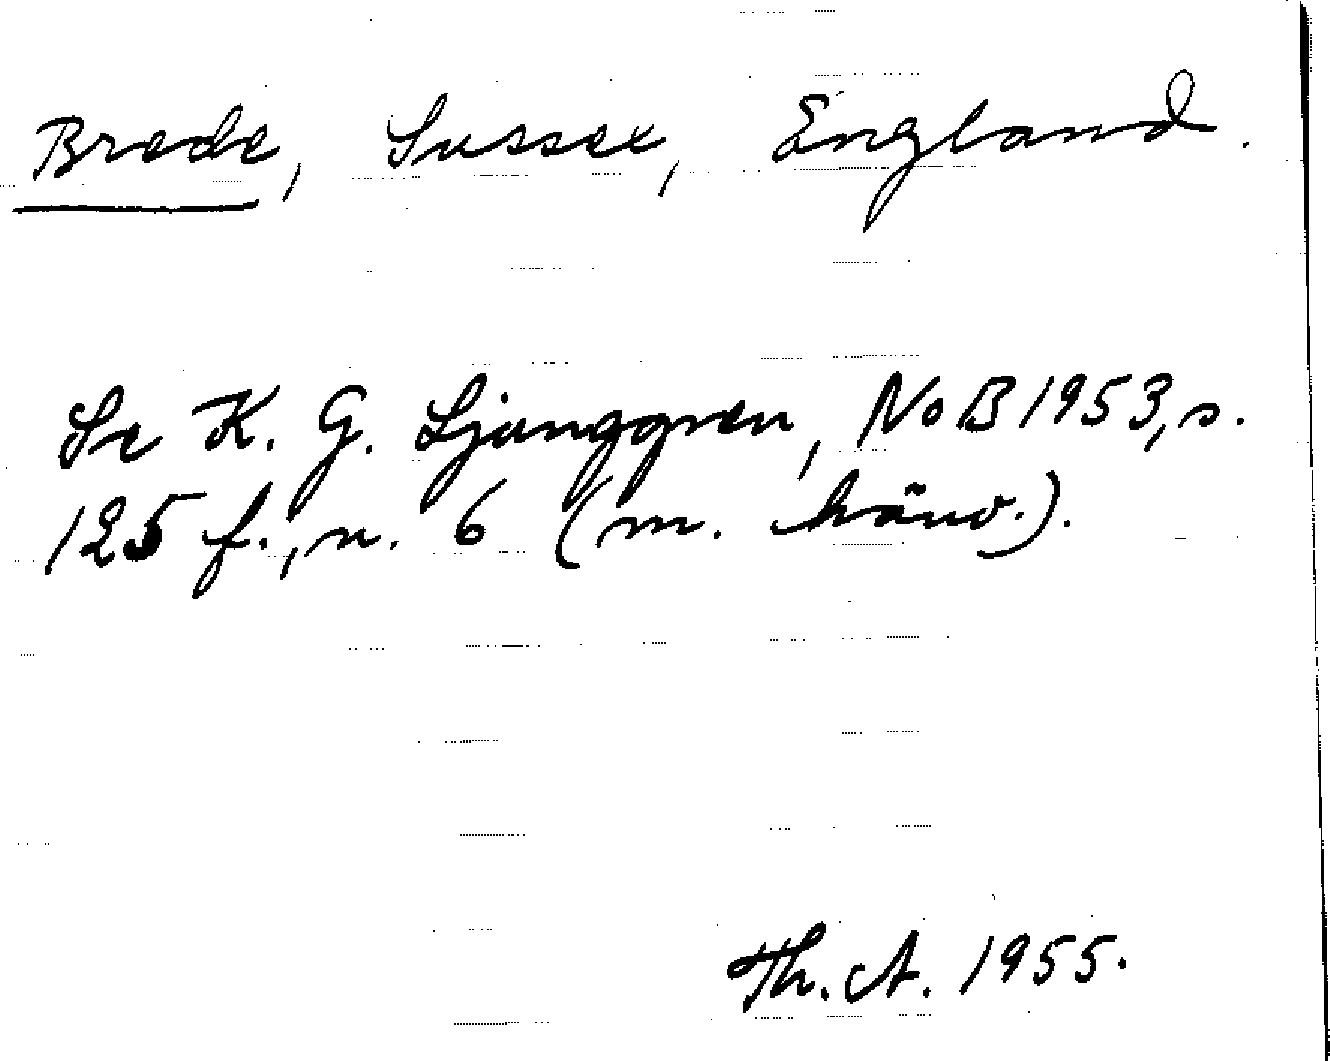 Brede, Sussex, England.
Se K. G. Ljunggren, NoB 1953, s.
125 f., n. 6 (m. hänv.).
Th. A. 1955.